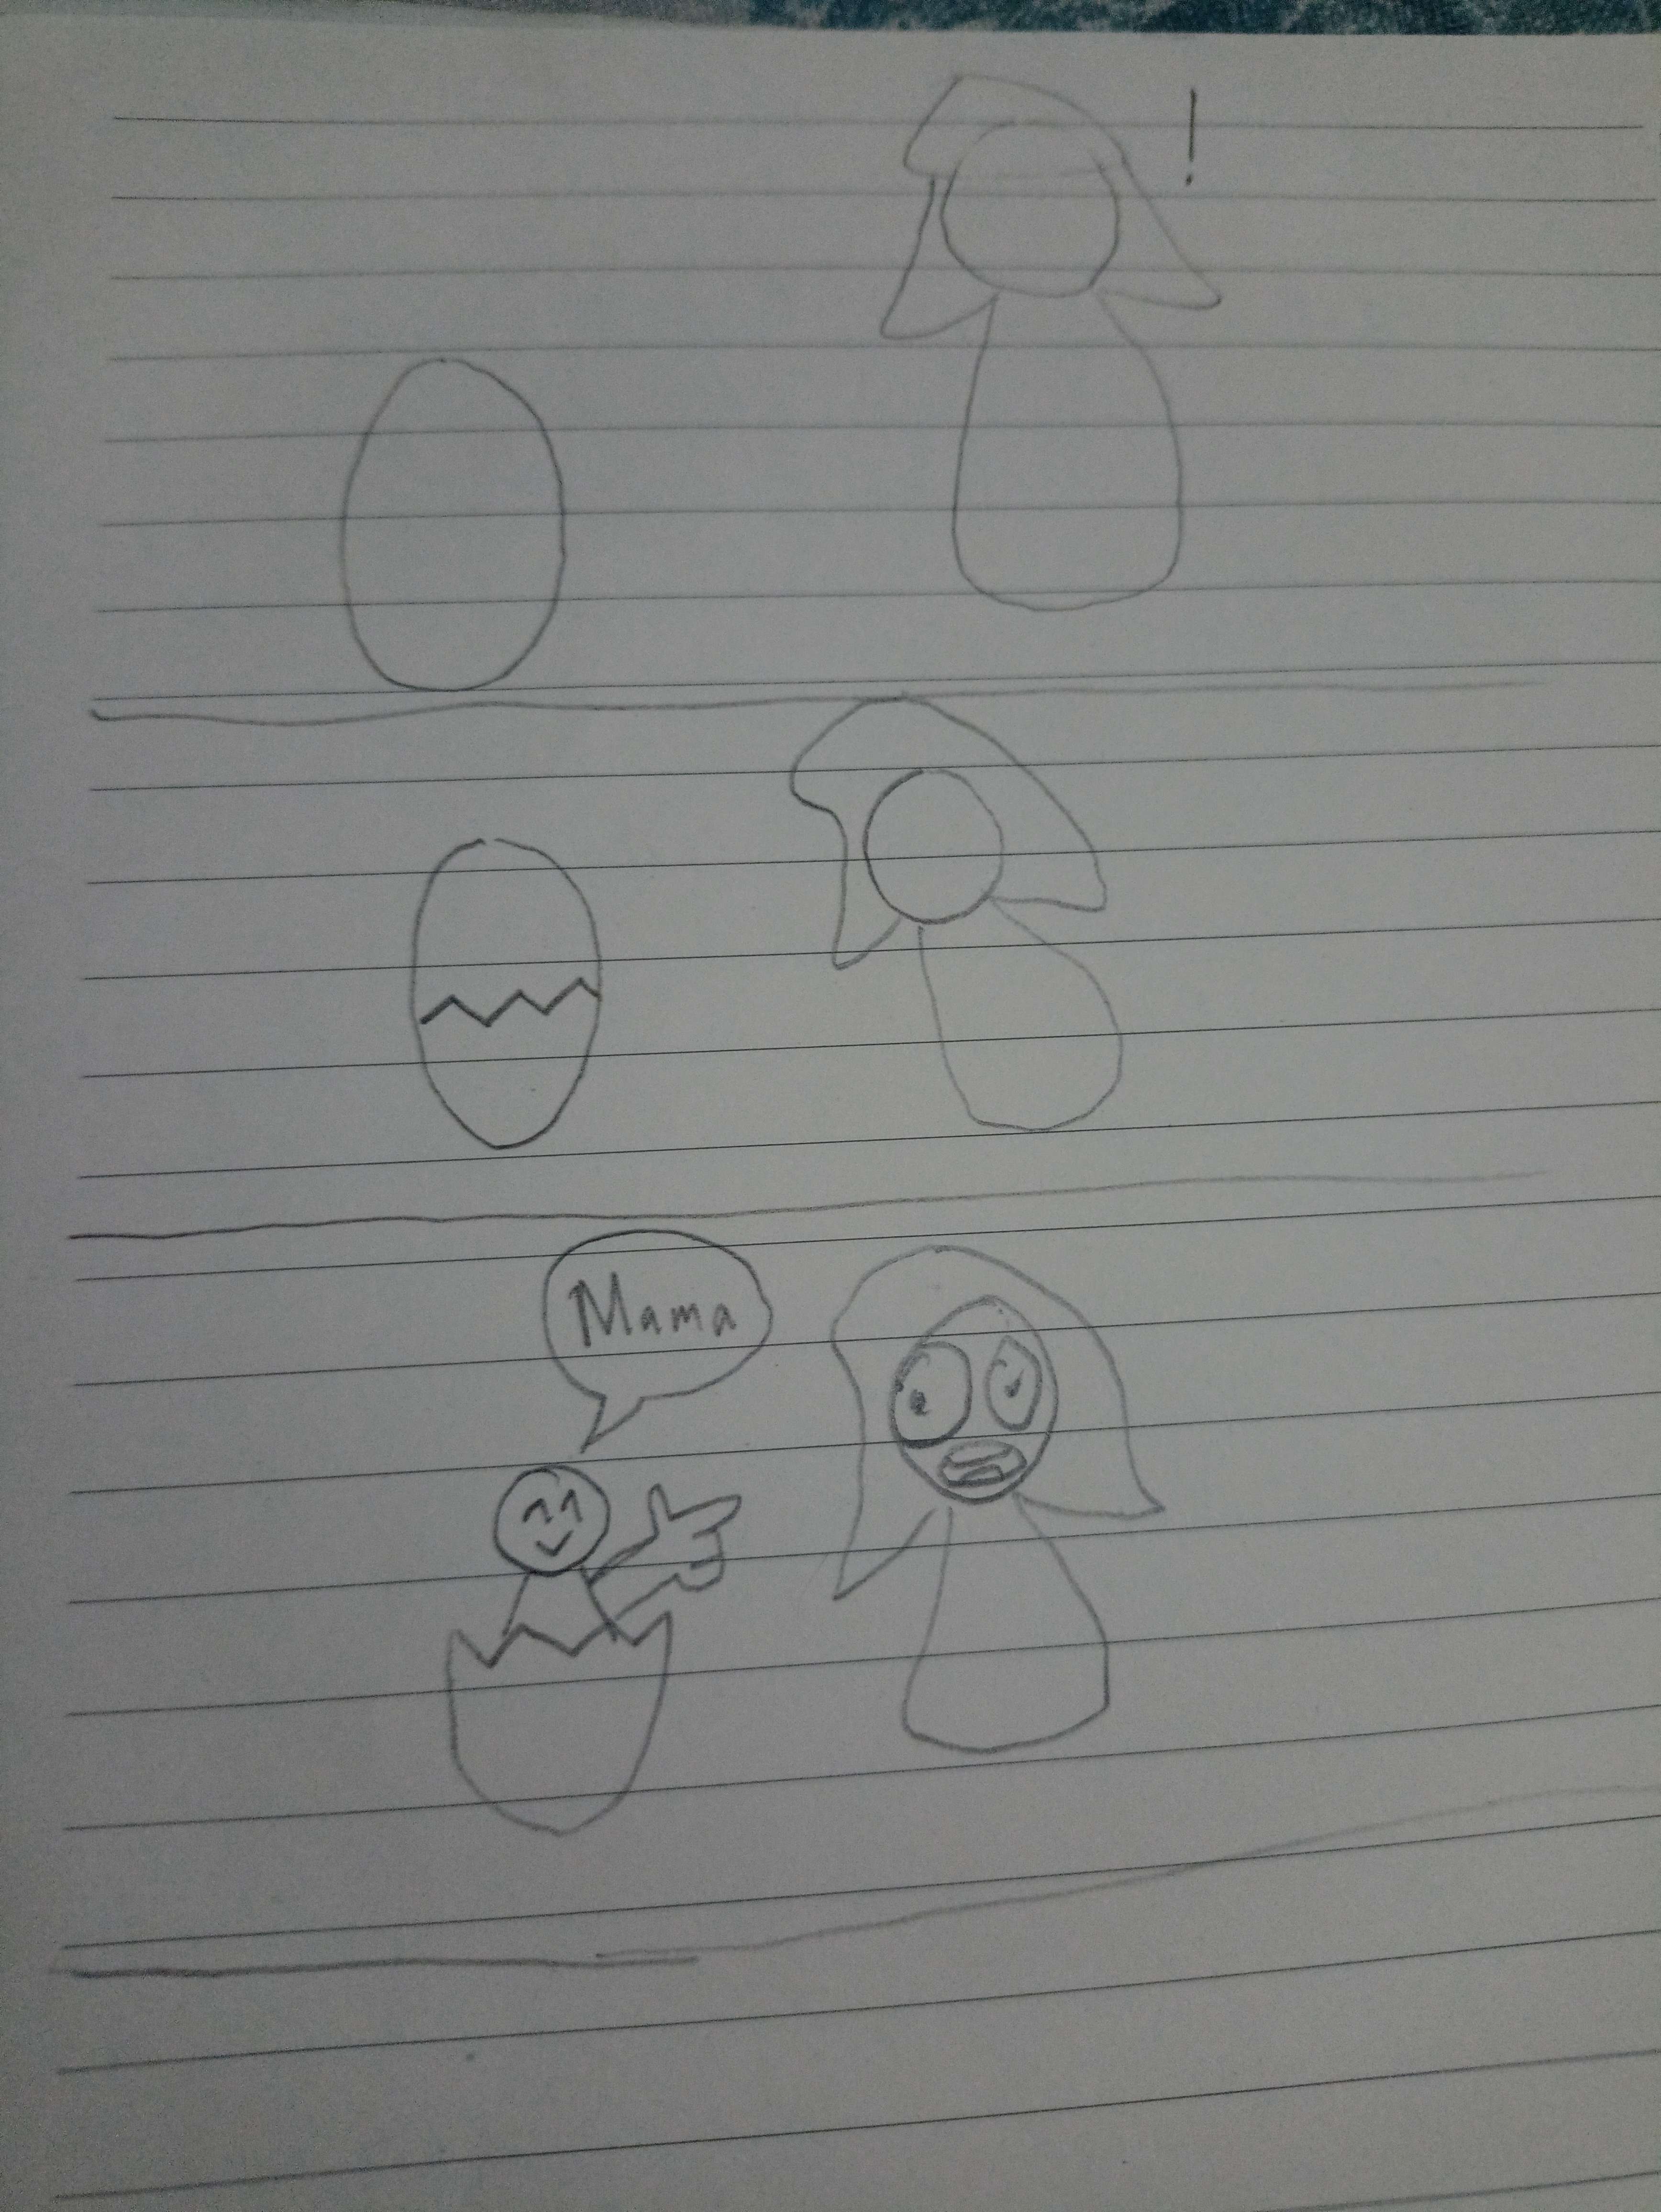 !
Mama